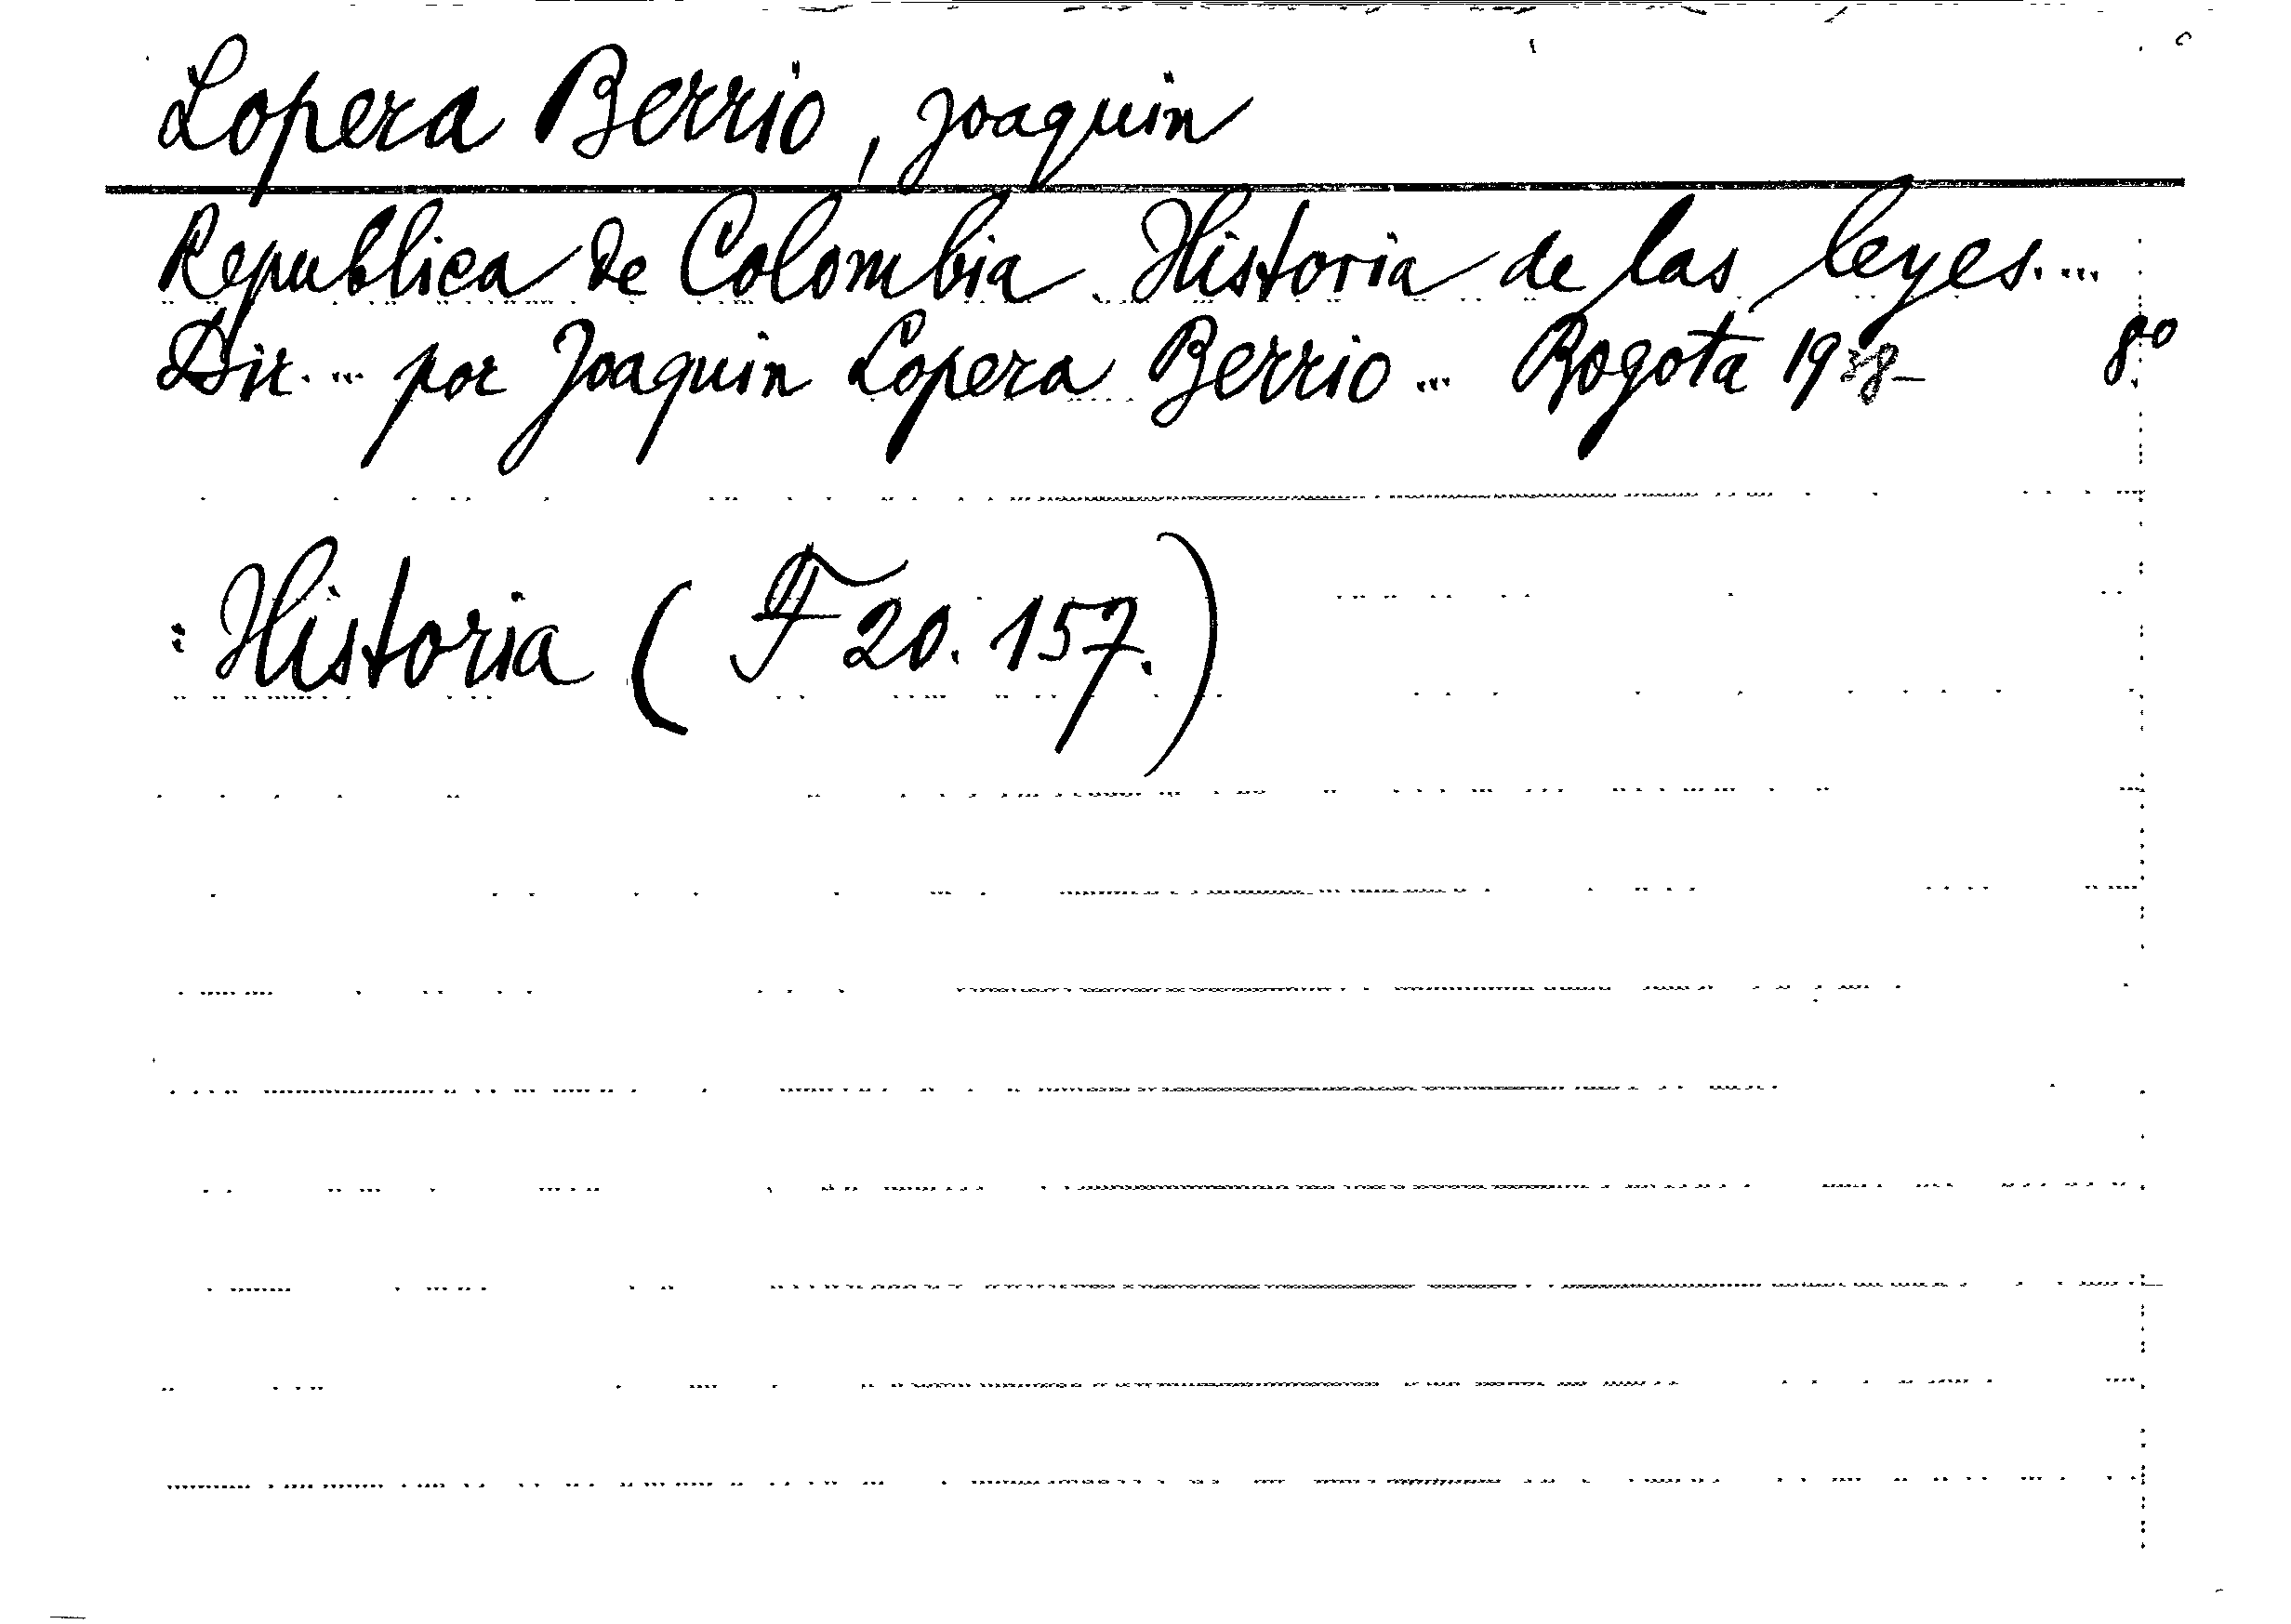 Lopera Berrio, Joaquin
Republica de Colombia. Historia de las leyes....
Dir.... por Joaquin Lopera Berrio... Bogota 1938- 8º
: Historia ( F 20. 157.)